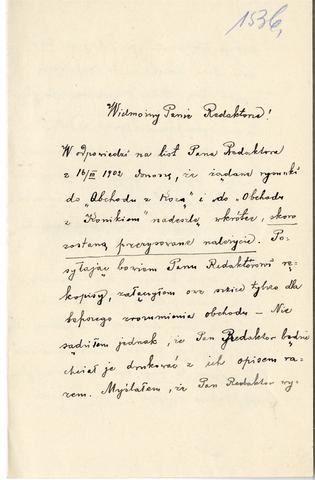 1536,
Wielmożny Panie Redaktorze!
W odpowiedzi na list Pana Redaktora
z 16/III 1902 donoszę, że żądane rysunki
do „Obchodu z Kozą" i do „Obchodu
z Konikiem" nadeszlę wkrótce, skoro
zostaną przerysowane należycie. Po-
syłając bowiem Panu Redaktorowi rę-
kopisy, załączyłem owe szkice tylko dla
lepszego zrozumienia obchodu – Nie
sądziłem jednak, że Pan Redaktor będzie
chciał je drukować z ich opisem ra-
zem. Myślałem, że Pan Redaktor wy-